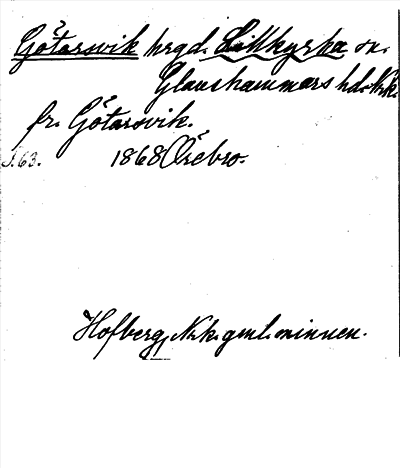 Götarsvik hrgd. Lillkyrka sn.
Glanshammars hd. Nrk.
fr. Götarsvik.
S. 63. 1868 Örebro.
Hofberg, Nrk. gml. minnen.